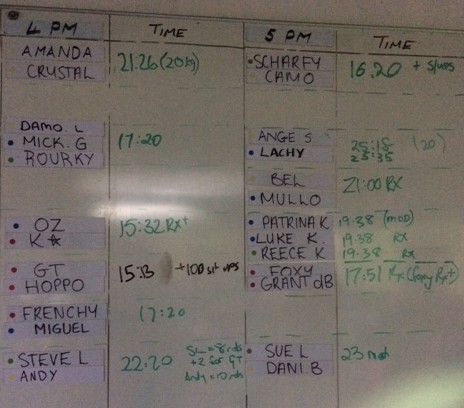 4 PM TIME 5 PM TIME
AMANDA
CRYSTAL 21:26 (20kg)
SCHARFY
CAMO 16:20 + S/UPS
DAMO. L
MICK. G 17:20
ROURKY
ANGE S 25:18 (20)
LACHY 25:35
BEL 21:00 RX
MULLO
OZ 15:32 Rx+
K☆
PATRINA K 19.38 (mod)
LUKE K. 19.38 RX
REECE K 19.38 RX
GT 15:13 +100 sit ups
HOPPO
FOXY 17:51 Rx (foxy Rx+)
GRANT dB
FRENCHY 17:20
MIGUEL
STEVE L 22:20
ANDY
+2 for GT
SUE L 23 mod
DANI B